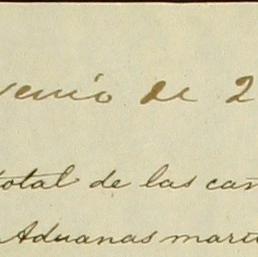 venio de 2
total de las can
Aduanas marí